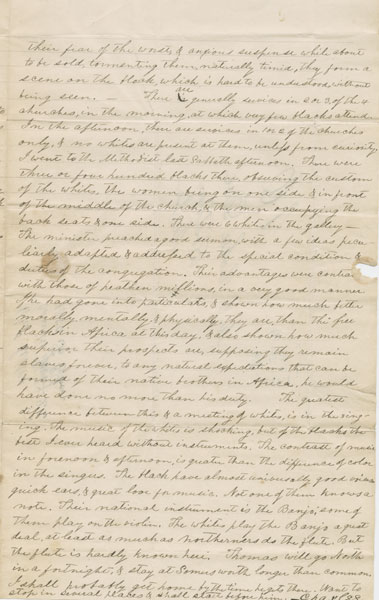 their fear of the worst, & anxious suspense while about
to be sold, tormenting them, naturally timid, they form a
scene on the block, which is hard to be understood, without
being seen. — There are generally services in 2 or 3 of the 4
churches, in the morning, at which very few blacks attend.
In the afternoon, there are services in 1 or 2 of the churches
only, & no whites are present at them, unless from curiosity.
I went to the Methodist last Sabbath afternoon. There were
three or four hundred blacks there observing the custom
of the whites, the women being on one side & in front
of the middle of the church, & the men occupying the
back seats & one side. There were 6 whites in the gallery —
The minister preached a good sermon, with a few ideas pecu
liarly adapted & addressed to the special condition &
duties of the congregation. Their advantages were contras
with those of heathen millions, in a very good manner
If he had gone into particulars, & shown how much better
morally, mentally & physically, they are, than the free
blacks in Africa at this day, & also shown how much
superior their prospects are, supposing they remain
slaves forever, to any natural expectations that can be
formed of their native brothers in Africa, he would
have done no more than his duty. The greatest
difference between this & a meeting of whites, is in the sing-
ing. The music of the whites is shocking, but of the blacks the
best I ever heard without instruments. The contrast of music
in forenoon & afternoon, is greater than the difference of color
in the singers. The black have almost universally good voices
quick ears, & great love for music. Not one of them knows a
note. Their national instrument is the Banjo; some of
them play on the violin. The whites play the Banjo a great
deal, at least as much as northerners do the flute. But
the flute is hardly known here. Thomas will go North
in a fortnight, & stay at Somersworth longer than common
I shall probably get home by the time he gets there. Want to
stop in several places & shall start before him.